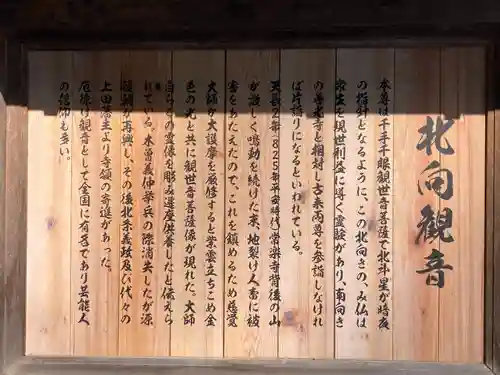 北向観音
本尊は千手千眼観世音菩薩で北斗星が暗夜
の指針となるように、この北向きのみ仏は
衆生を現世利益に導く霊験があり、南向き
の善光寺と相対し古来両尊を参詣しなけれ
ば片詣りになるといわれている。
天長2年(825年平安時代)常楽寺背後の山
が激しく鳴動を続けた末、地裂け人畜に被
害をあたえたので、これを鎮めるため慈覚
大師が大護摩を厳修すると紫雲立ちこめ金
色の光と共に観世音菩薩像が現れた。大師
自らその霊像を彫み遷座供養したと伝えら
れている。木曽義仲挙兵の際消失したが源
頼朝が再興し、その後北条義政及び代々の
上田藩主より寺領の寄進があった。
厄除け観音として全国に有名であり芸能人
の信仰も多い。